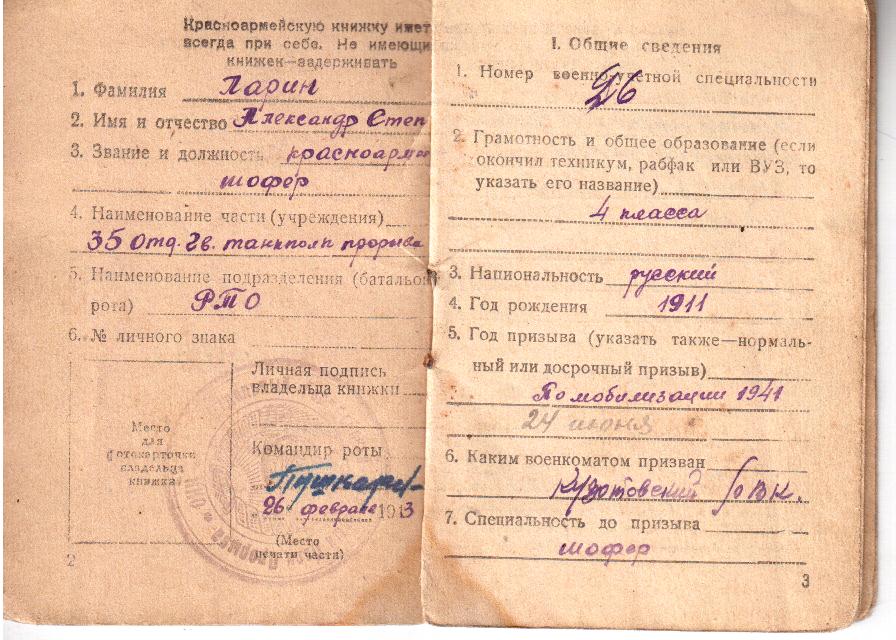 Красноармейскую книжку имет
всегда при себе. Не имеющи
книжек—задерживать
1. Фамилия Ларин
2. Имя и отчество Александр Степ
3. Звание и должность красноарм
шофер
4. Наименование части (учреждения)
35 отд. Гв. танкполк прорыва
5. Наименование подразделения (батальон
рота) РТО
6. № личного знака
Место
для
фотокарточки
владельца
книжки
Личная подпись
владельца книжки
Командир роты
26 февраля 1943
(Место
печати части)
2
I. Общие сведения
1. Номер военно-учетной специальности
26
2. Грамотность и общее образование (если
окончил техникум, рабфак или ВУЗ, то
указать его название)
4 класса
3. Национальность русский
4. Год рождения 1911
5. Год призыва (указать также—нормаль-
ный или досрочный призыв)
По мобилизации 1941
24 июня
6. Каким военкоматом призван
ГВК.
7. Специальность до призыва
шофер
3